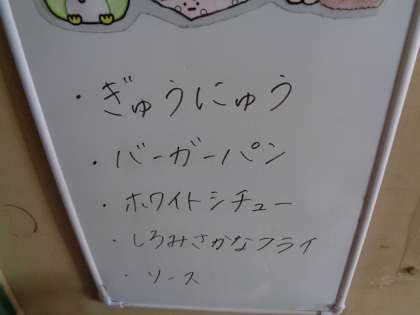 ・ぎゅうにゅう
・バーガーパン
・ホワイトシチュー
・しろみさかなフライ
・ソース